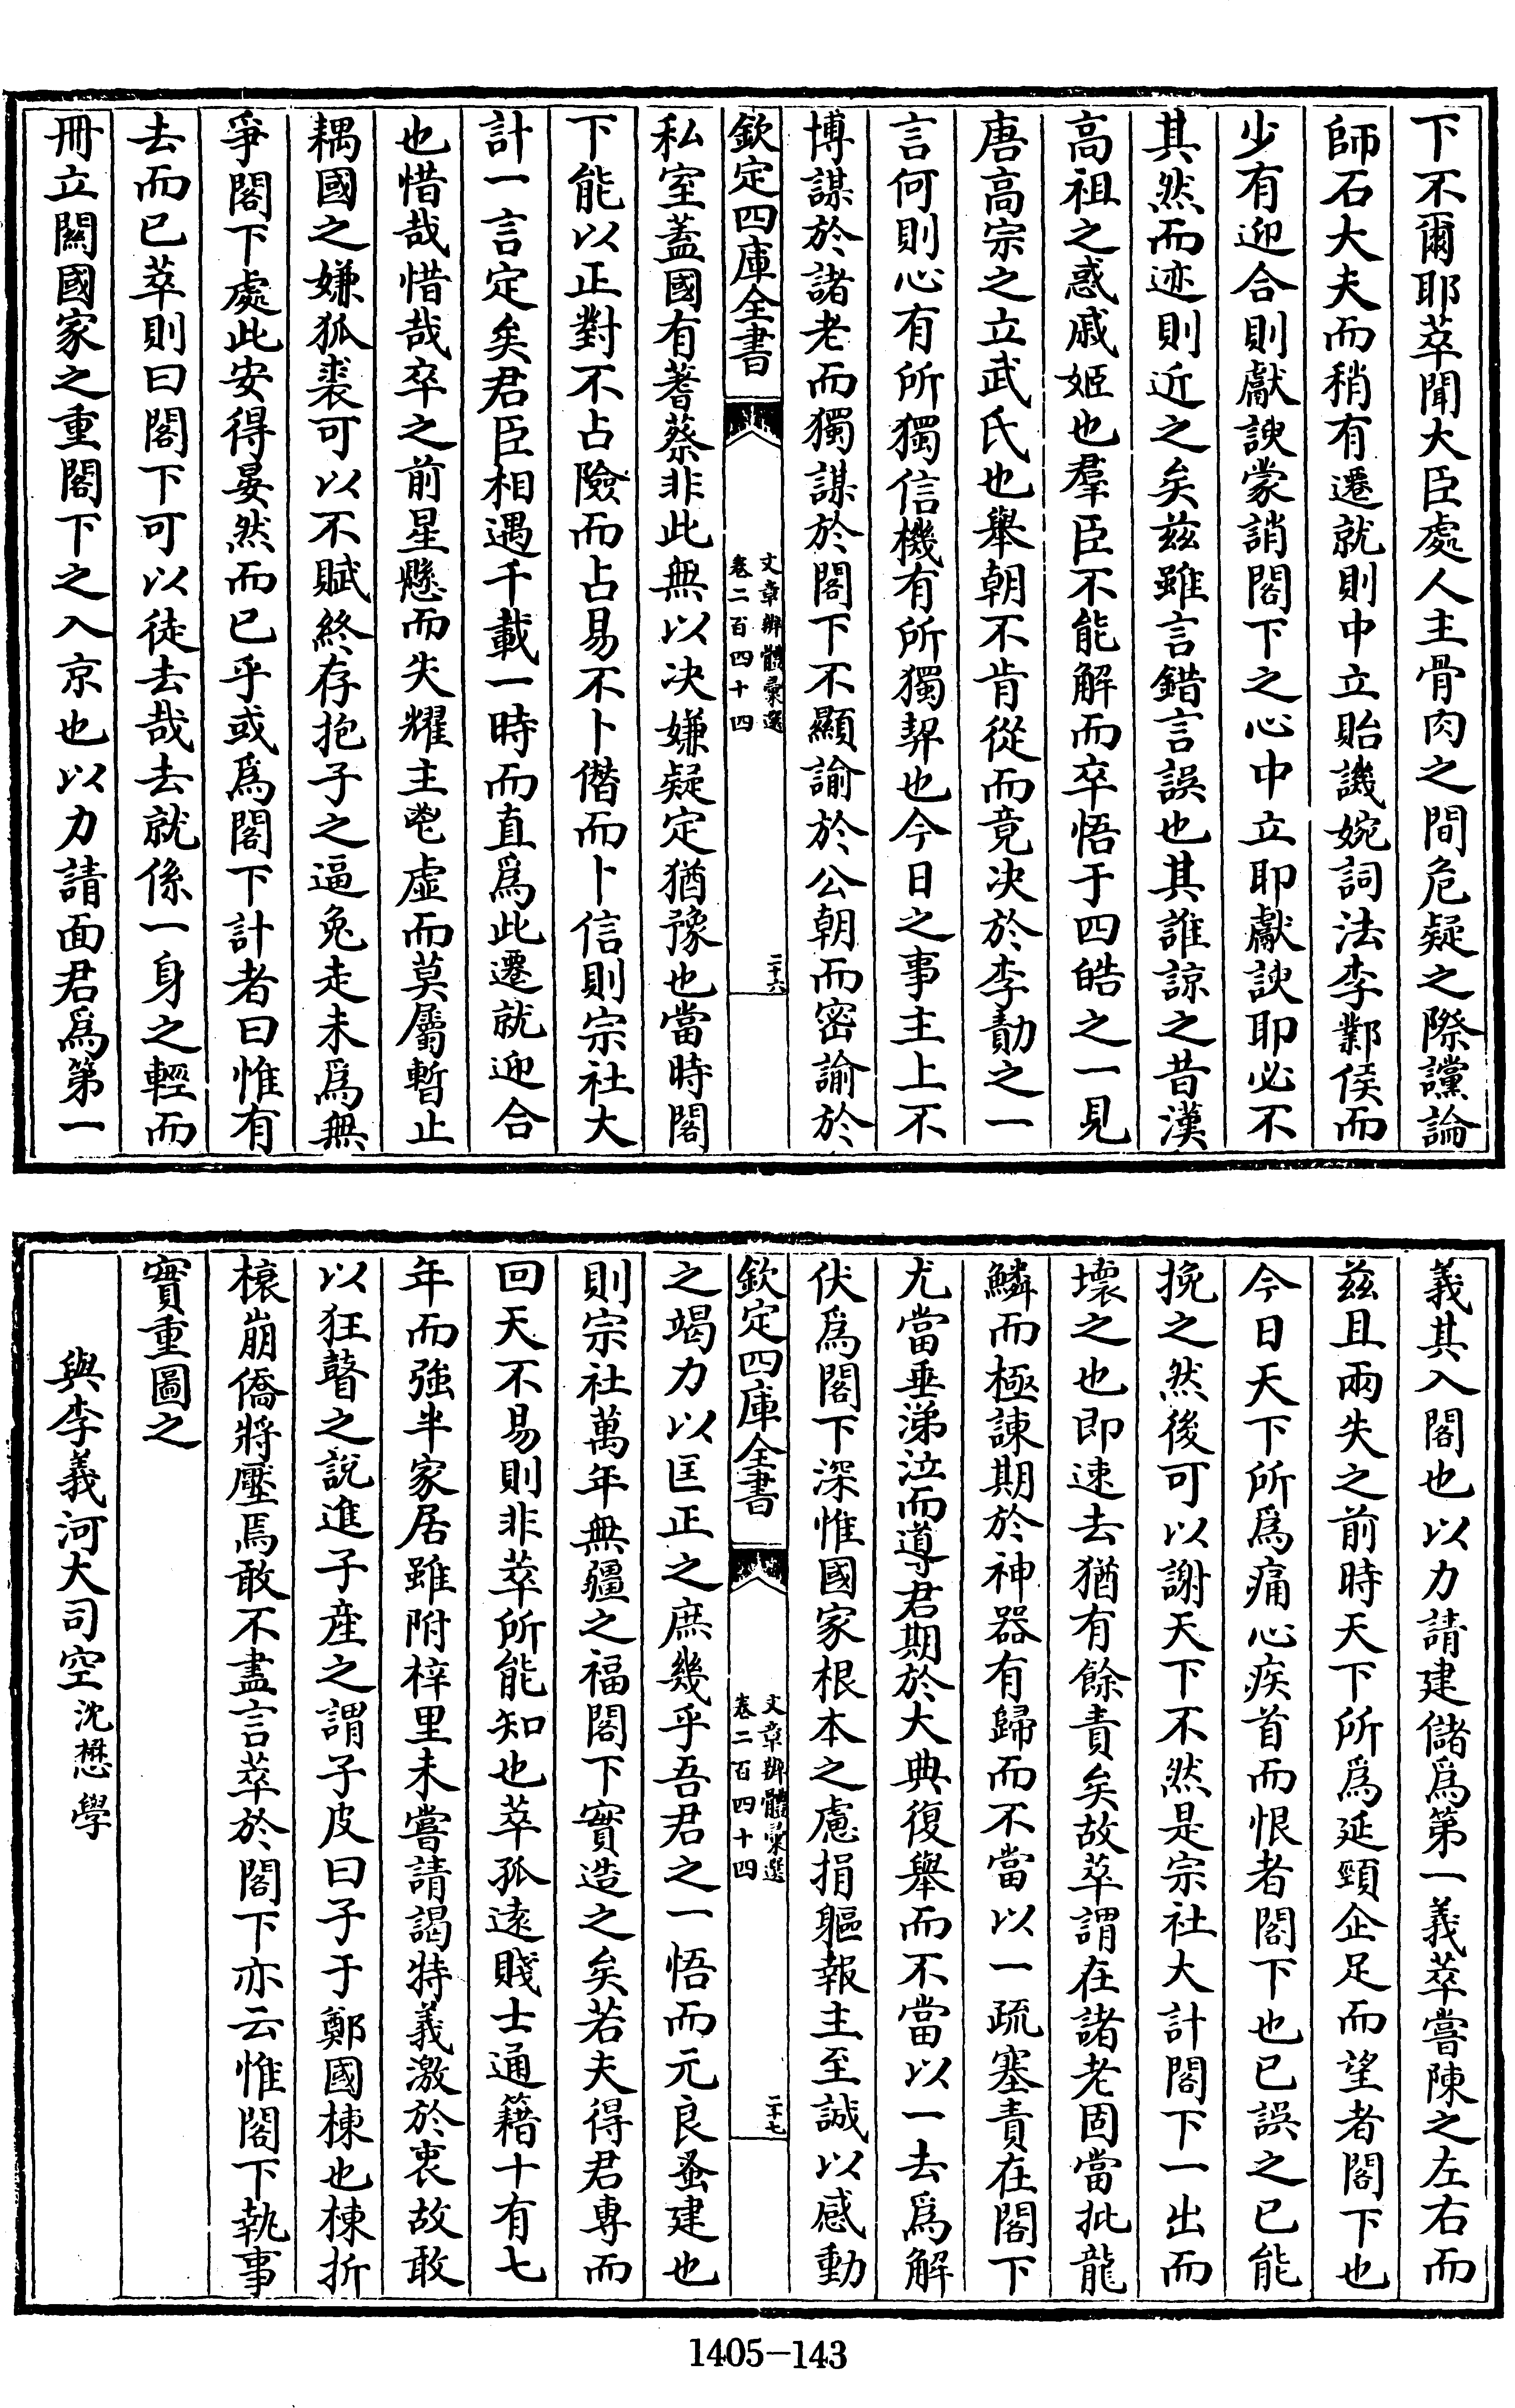 下不爾耶萃聞大臣處人主骨肉之間危疑之際讜論
師石大夫而稍有遷就則中立貽譏婉詞法李鄴侯而
少有迎合則獻諛蒙誚閣下之心中立耶獻諛耶必不
其然而迹則近之矣兹雖言錯言誤也其誰諒之昔漢
高祖之惑戚姬也羣臣不能解而卒悟于四皓之一見
唐高宗之立武氏也舉朝不肯從而竟决於李勣之一
言何則心有所獨信機有所獨契也今日之事主上不
博謀於諸老而獨謀於閣下不顯諭於公朝而密諭於
欽定四庫全書
文章辨體彙選
卷二百四十四
二十六
私室蓋國有蓍蔡非此無以决嫌疑定猶豫也當時閣
下能以正對不占險而占易不卜僭而卜信則宗社大
計一言定矣君臣相遇千載一時而直爲此遷就迎合
也惜哉惜哉卒之前星懸而失耀主鬯虚而莫屬暫止
耦國之嫌狐裘可以不賦終存抱子之逼兔走未爲無
爭閣下處此安得晏然而已乎或爲閣下計者曰惟有
去而已萃則曰閣下可以徒去哉去就係一身之輕而
冊立關國家之重閣下之入京也以力請面君爲第一
義其入閣也以力請建儲爲第一義萃嘗陳之左右而
兹且兩失之前時天下所爲延頸企足而望者閣下也
今日天下所爲痛心疾首而恨者閣下也已誤之已能
挽之然後可以謝天下不然是宗社大計閣下一出而
壞之也即速去猶有餘責矣故萃謂在諸老固當批龍
鱗而極諫期於神器有歸而不當以一疏塞責在閣下
尤當垂涕泣而導君期於大典復舉而不當以一去爲解
伏爲閣下深惟國家根本之慮捐軀報主至誠以感動
欽定四庫全書
文章辨體彙選
卷二百四十四
二十七
之竭力以匡正之庶幾乎吾君之一悟而元良蚤建也
則宗社萬年無疆之福閣下實造之矣若夫得君專而
回天不易則非萃所能知也萃孤遠賤士通籍十有七
年而強半家居雖附梓里未嘗請謁特義激於衷故敢
以狂瞽之說進子産之謂子皮曰子于鄭國棟也棟折
榱崩僑將壓焉敢不盡言萃於閣下亦云惟閣下執事
實重圖之
與李義河大司空沈懋學
1405-143